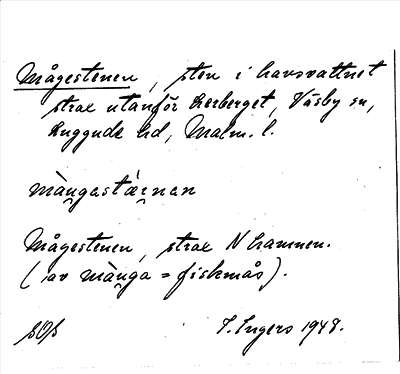 Mågestenen, sten i havsvattnet
strax utanför Lerberget, Väsby sn,
Luggude hd, Malm. l.
màngastæ̀rnan
Mågestenen, strax N hamnen.
(av mànga = fiskmås).
SOS
I. Ingers 1948.